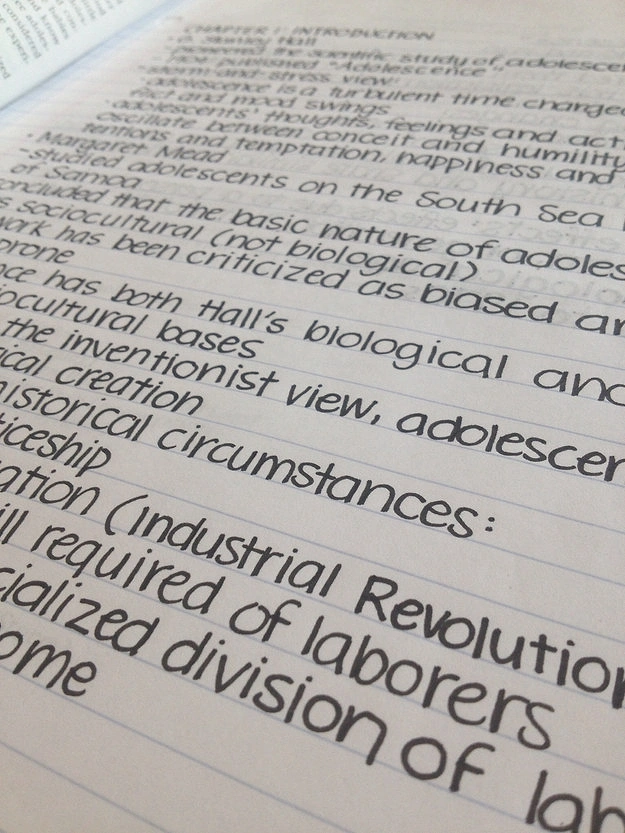 CHAPTER 1: INTRODUCTION
Hall
- pioneered the scientific study of adolescen
published "Adolescence"
- storm-and-stress view
adolescence is a turbulent time charged
and mood swings
- adolescents' thoughts, feelings and acti
oscillate between conceit and humility
tentions and temptation, happiness and
· Margaret Mead
- studied adolescents on the South Sea
of Samoa
oncluded that the basic nature of adoles
s sociocultural (not biological)
work has been criticized as biased an
prone
nce has both Hall's biological and
iocultural bases
the inventionist view, adolescen
ical creation
historical circumstances:
ticeship
ation (Industrial Revolution
ill required of laborers
cialized division of lab
ome